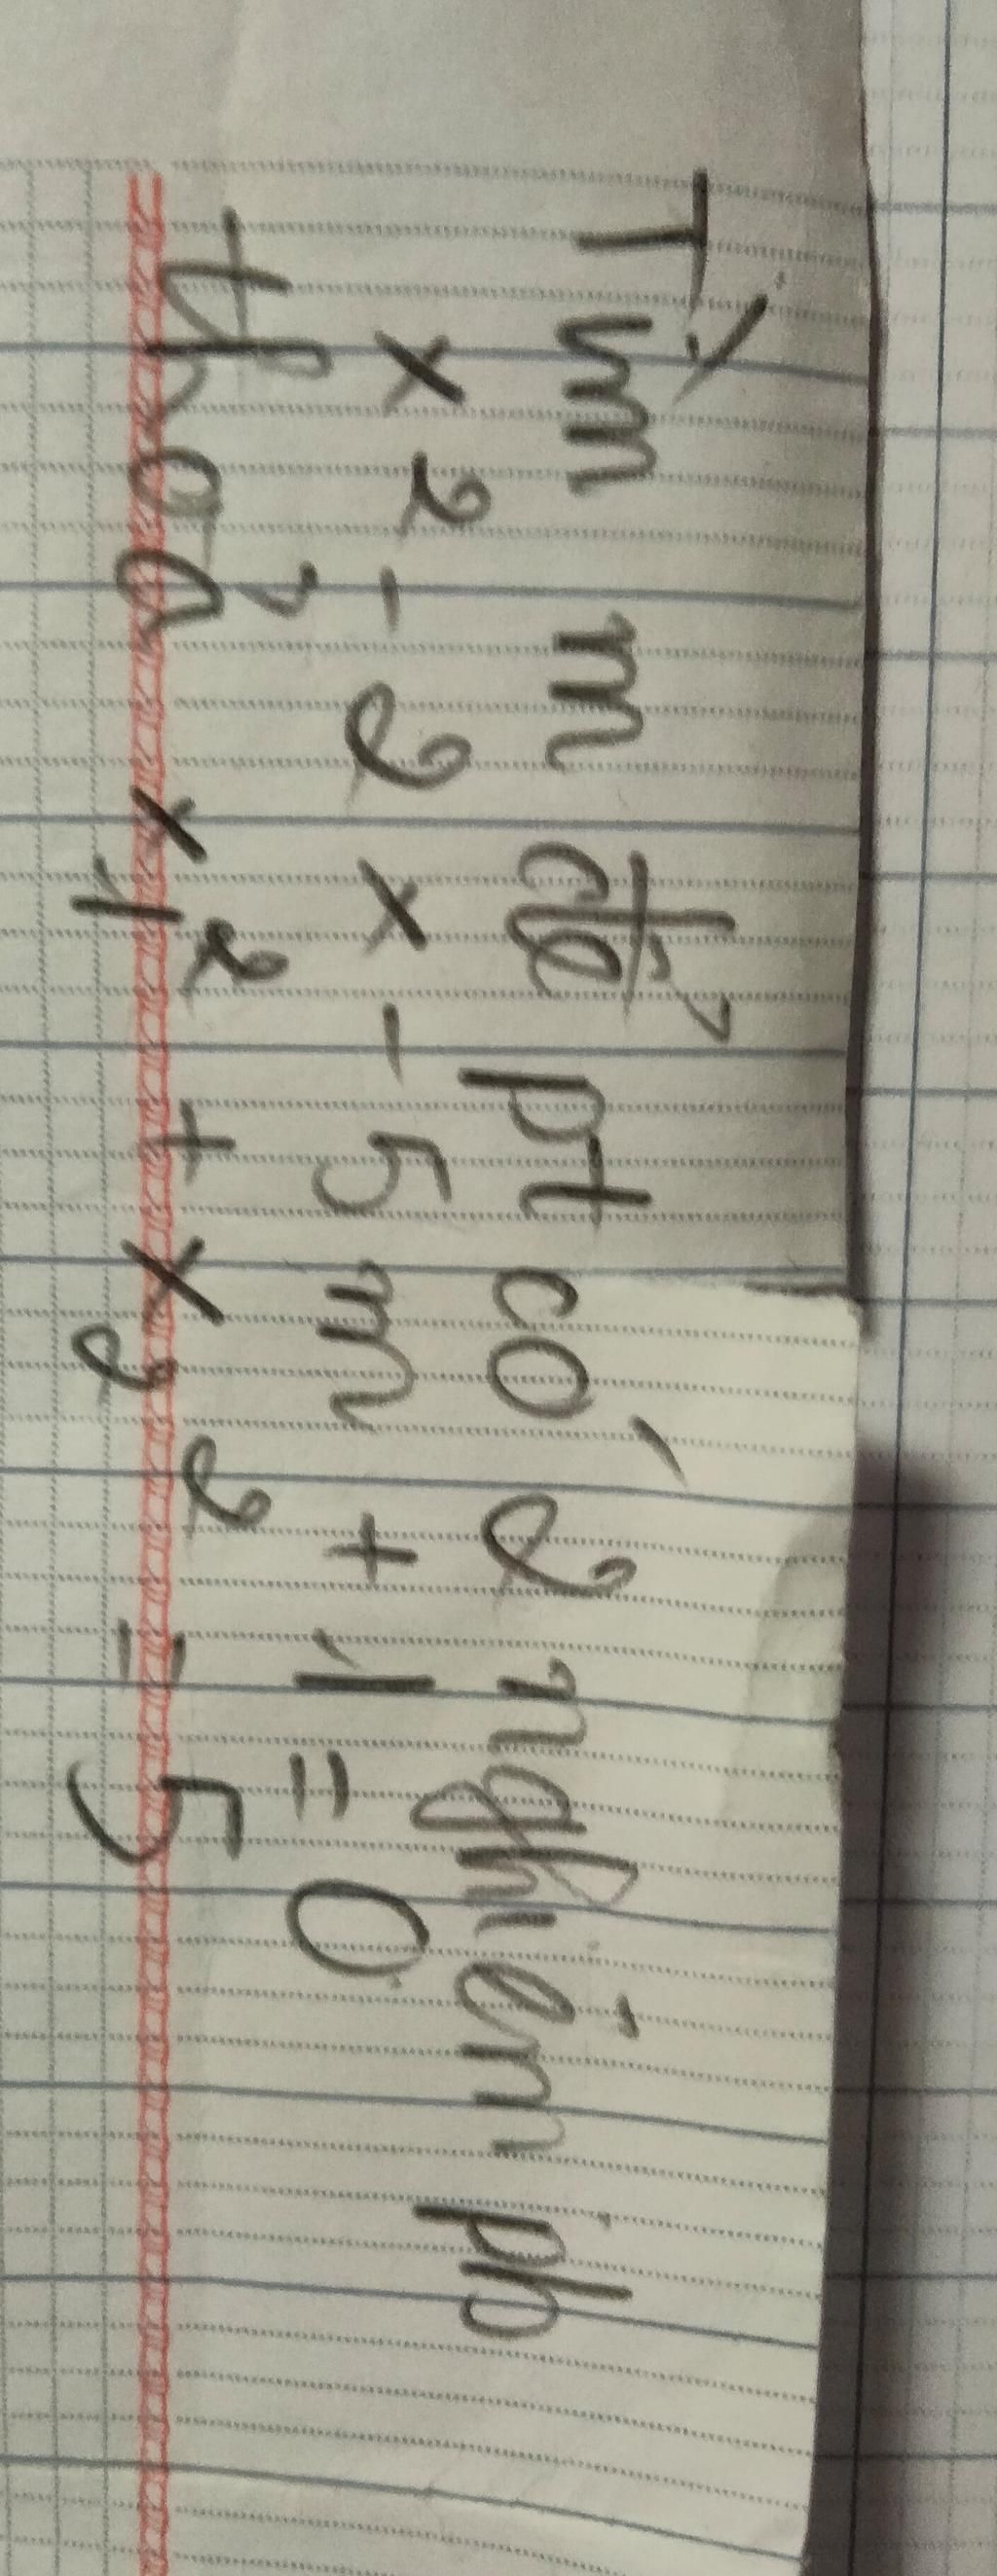 Tìm m để pt có 2 nghiệm pb
x² - 2x - 5m + 1 = 0
thoả x₁² + x₂² = 5